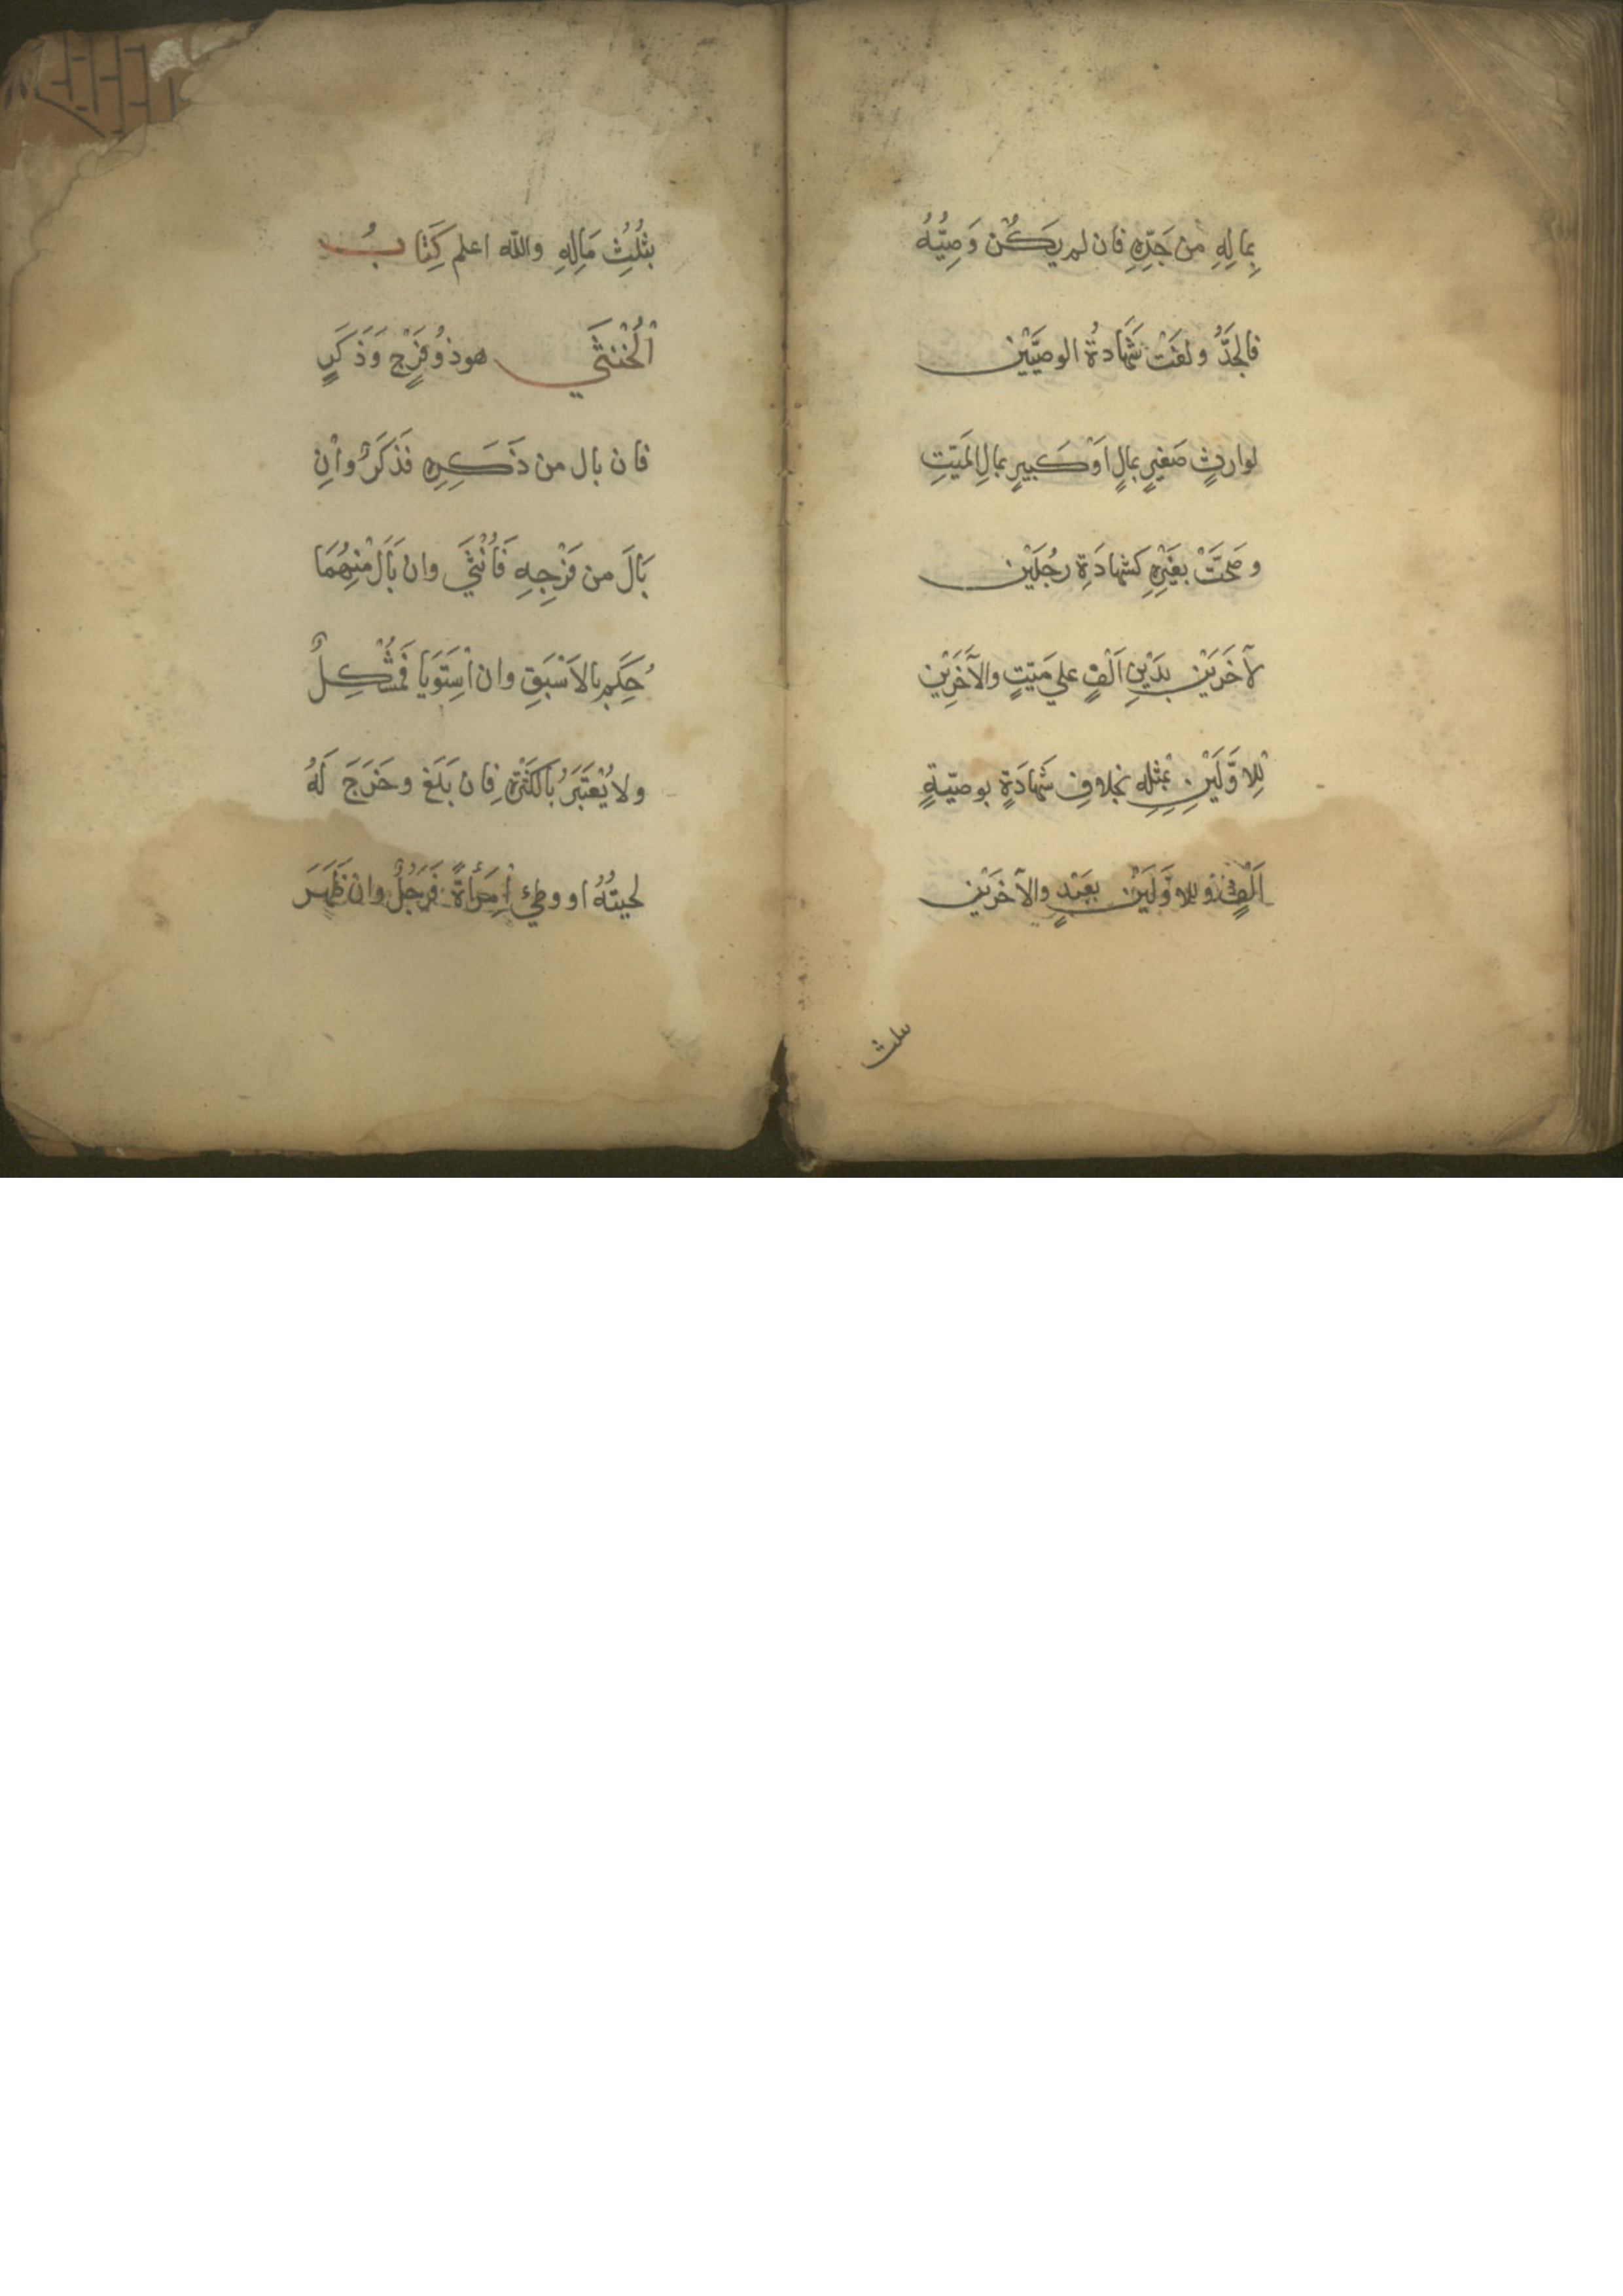 بِمالِهِ من جَدِّهِ فان لم يَكُنْ وَصِيُّهُ
فالجَدُّ ولغَتْ شَهَادةُ الوصِيَّيْنِ
لوارثٍ صَغيرٍ بمالٍ اَوْ كَبيرٍ بمالِ المَيّتِ
وصَحَّتْ بغَيْرِهِ كَشهادَةِ رجُلَيْنِ
لآخَرَيْنِ بدَيْنِ اَلْفٍ علي مَيّتٍ والآخَرَيْنِ
لِلاوَّلَيْنِ بمْثِلِهِ بخلافِ شَهادَةٍ بوصيّةٍ
اَلْفٍ وللاوَّلَيْنِ بعَبْدٍ والآخَرَيْنِ
بثلث
بثُلُثِ مَالِهِ والله اعلم كِتَابُ
اْلخُنْثَي هو ذُو فَرْجٍ وَذَكَرٍ
فان بال من ذَكَرِهِ فَذكَرٌ واْنِ
بَالَ من فَرْجِهِ فَاُنْثَي وان بَاَل مْنِهُمَا
حُكِم بالاَسْبَقِ وان اْستَوَيَا فَمُشْكِلٌ
ولا يُعْتَبَرُ بالكَثْرةِ فان بَلَغ وخَرَجَ لَهُ
لحيتُهُ او وطِئ اْمرَأةً فَرَجُلٌ وان ظَهَرَ